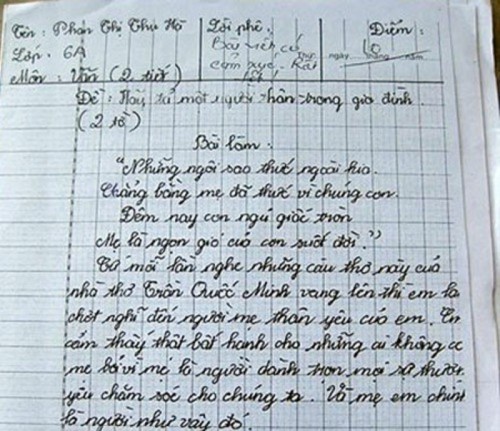 Tên : Phan Thị Thu Hà Lời phê : Điểm :
Lớp . 6A Bài viết có 10
cảm xúc. Rất Thứ ngày tháng năm
Môn : Văn (2 tiết) tốt !
Đề : Hãy tả một người thân trong gia đình
(2 tờ)
Bài làm :
"Những ngôi sao thức ngoài kia
Chẳng bằng mẹ đã thức vì chúng con
Đêm nay con ngủ giấc tròn
Mẹ là ngọn gió của con suốt đời."
Cứ mỗi lần nghe những câu thơ này của
nhà thơ Trần Quốc Minh vang lên thì em lại
chợt nghĩ đến người mẹ thân yêu của em. Em
cảm thấy thật bất hạnh cho những ai không có
mẹ bởi vì mẹ là người dành trọn mọi sự thương
yêu chăm sóc cho chúng ta . Và mẹ em chính
là người như vậy đó.